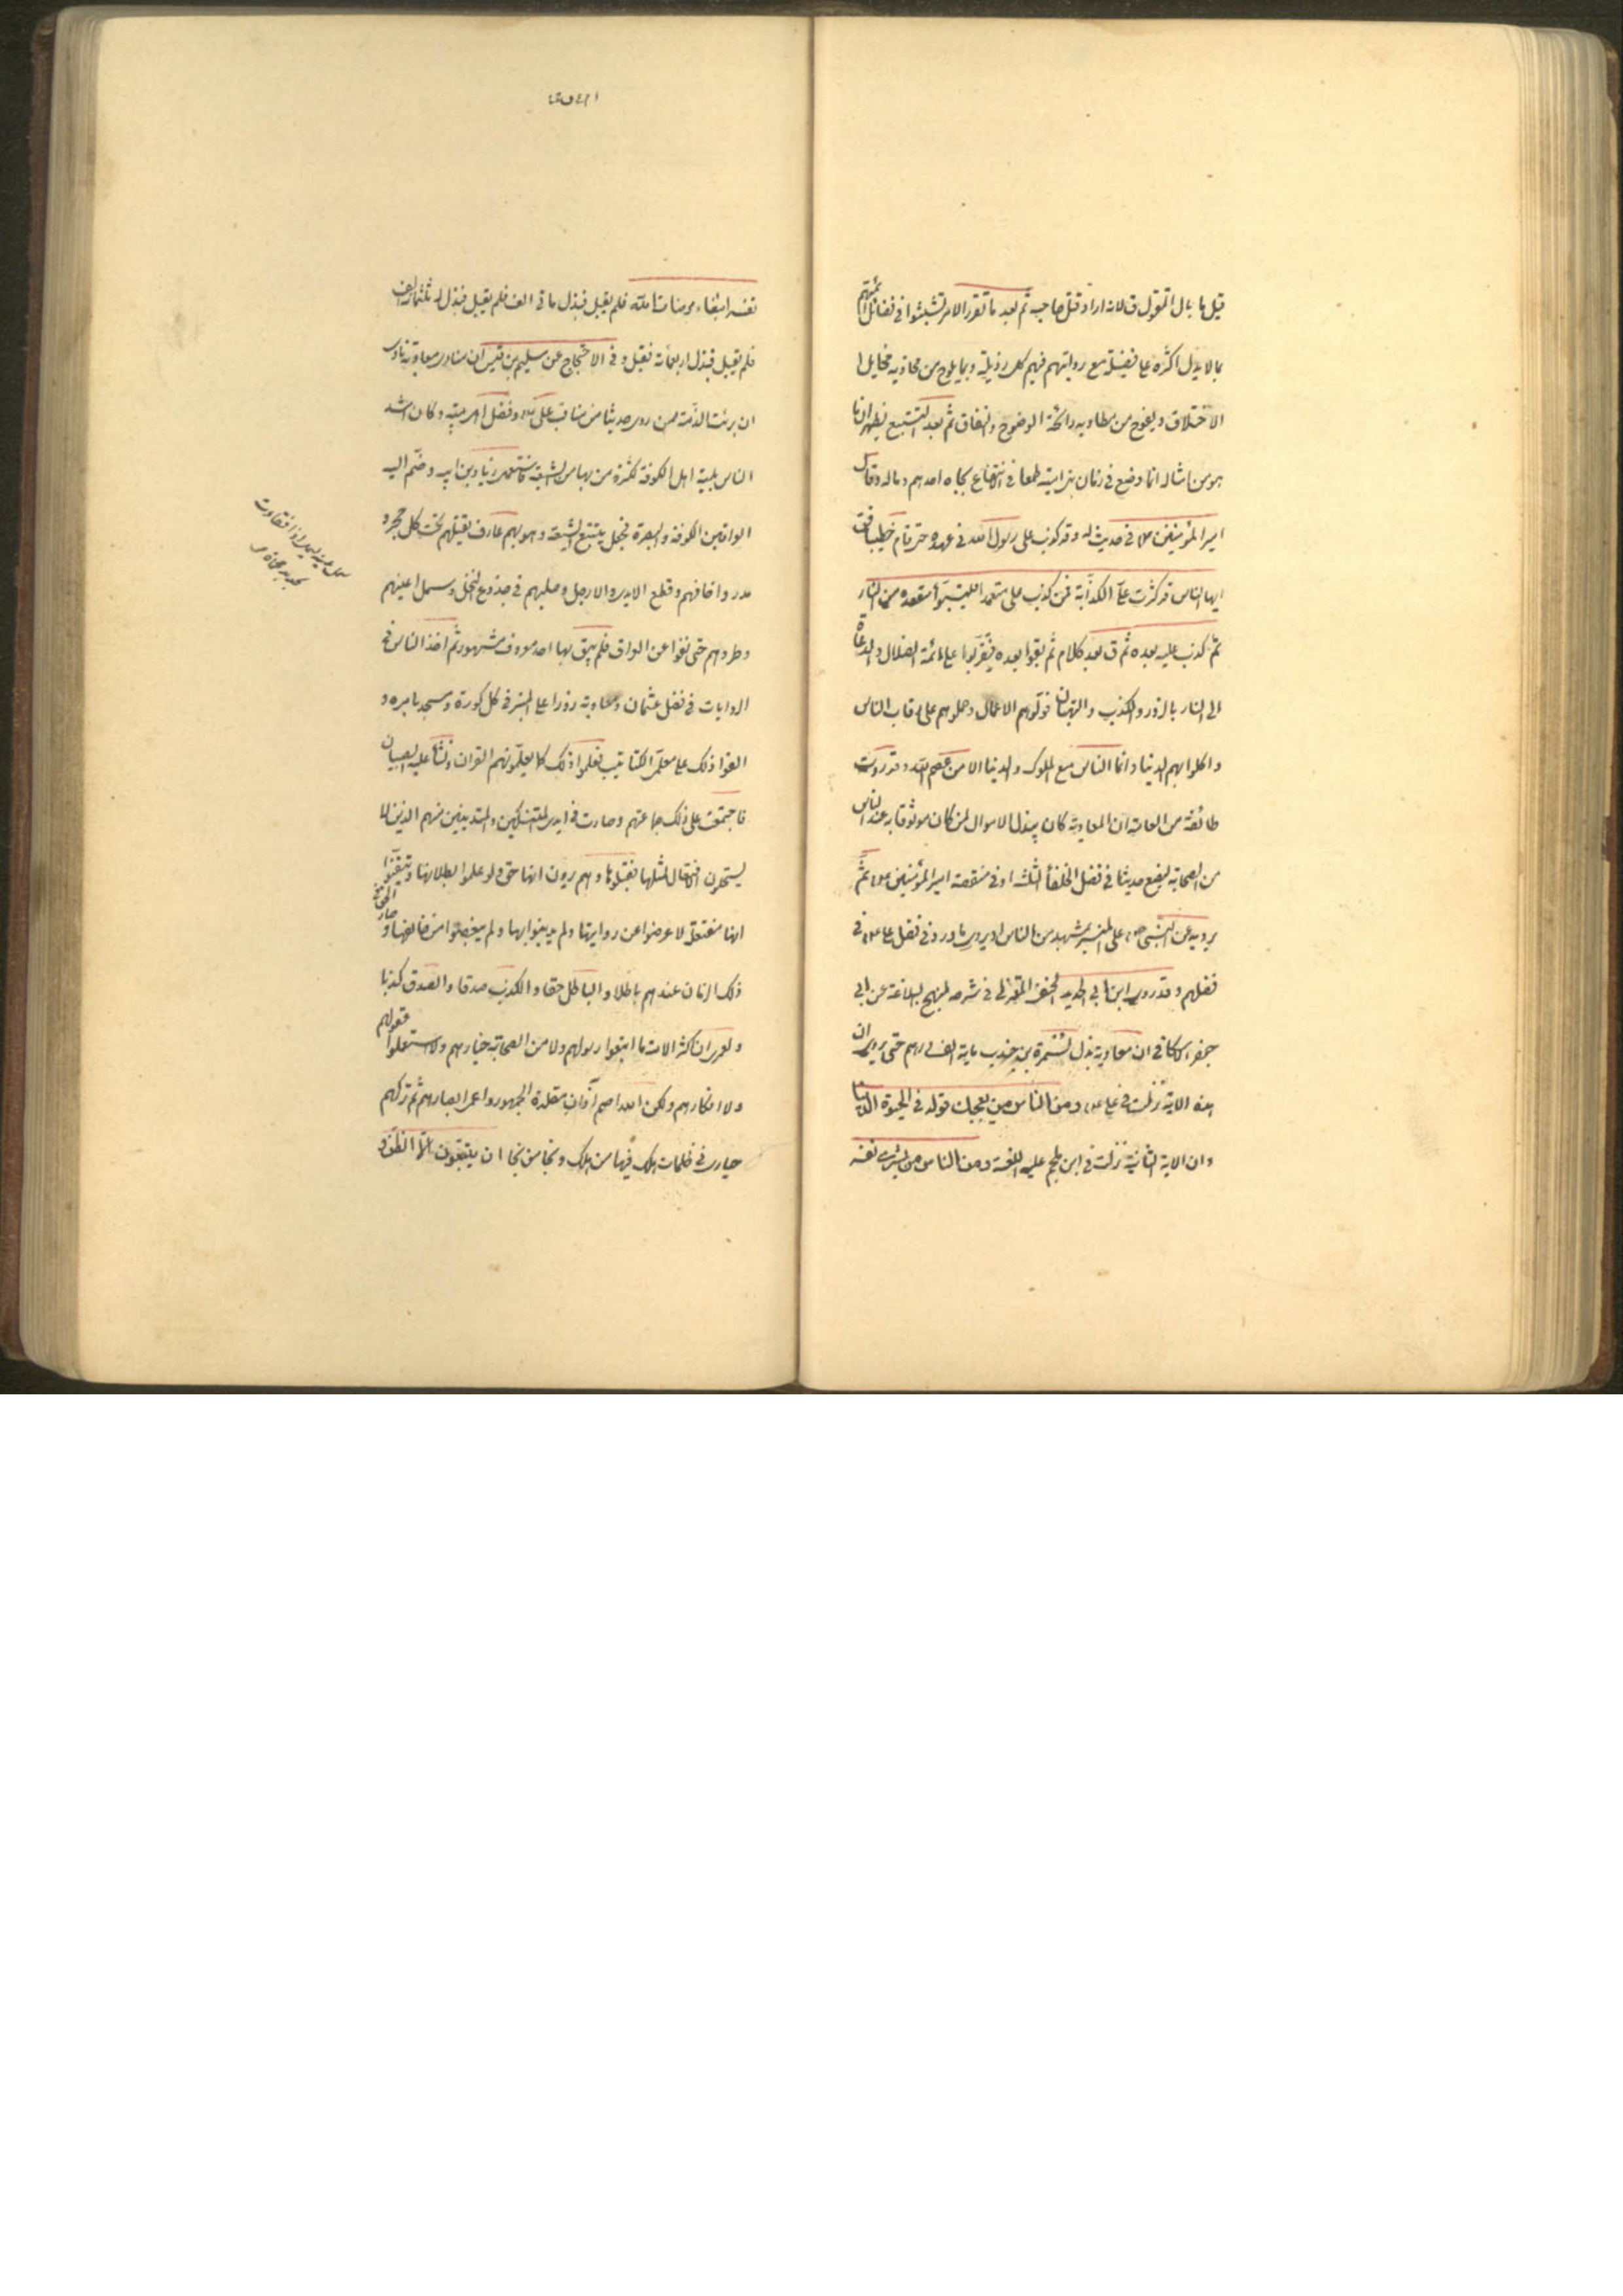 قيل ما بال المقتول ق لانه اراد قتل صاحبه ثم بعد ما تقرر الامر تشبثوا في فضائل ائمتهم
بما لا يدل اكثره على فضيلة مع روايتهم فيهم كل رذيلة وبما يلوح من محاويه مخايل ا
الاختلاق ويفوح من مطاويه رائحة الوضوح والنفاق ثم بعد التتبع يظهر ان ما
هو من امثاله انما وضع في زمان بني امية طمعا في الانتفاع بجاه احدهم وماله وقال
امير المؤمنين ع في حديث له وقد كذب على رسول الله في عهده حتى قام خطيبا فق
ايها الناس قد كثرت علي الكذابة فمن كذب علي متعمدا فليتبوأ مقعده من النار
ثم كذب عليه بعده ثم ق بعد كلام ثم بقوا بعده فتقربوا على ائمة الضلال والدعاة
الى النار بالزور والكذب والبهتان فولوهم الاعمال وحملوهم على رقاب الناس
واكلوا بهم الدنيا وانما الناس مع الملوك والدنيا الا من عصم الله وقد روت
طائفة من العامة ان المعاوية كان يبذل الاموال لمن كان موثوقا به عند الناس
من الصحابة ليضع حديثا في فضل الخلفأ الثلثه او في منقصة امير المؤمنين ع ثم
يرويه عن النبي ص على المنبر بمشهد من الناس او يروي ما ورد في فضل علي ع في
فضلهم وقد روى ابن ابي الحديد الحنفي المعتزلي في شرحه لنهج البلاغة عن ابي
جعفر الاسكافي ان معاوية بذل لسمرة بن جندب ماية الف درهم حتى يروي ان
هذه الاية نزلت في علي ع ومن الناس من يعجبك قوله في الحيوة الدنيا
وان الاية الثانية نزلت في ابن ملجم عليه اللعنة ومن الناس من يشري نفسه
نفسه ابتغاء مرضات الله فلم يقبل فبذل مأتي الف فلم يقبل فبذل له ثلثمائة الف
فلم يقبل فبذل اربعمأئة فقبل وفي الاحتجاج عن سليم بن قيس ان منادى معاوية نادى
ان برئت الذمة ممن روى حديثا من مناقب على ع وفضل اهل بيته وكان اشد
الناس بلية اهل الكوفة لكثرة من بها من الشيعة فاستعمل زياد بن ابيه وضم اليه
العراقين الكوفة والبصرة فجعل يتتبع الشيعة وهو بهم عارف يقتلهم تحت كل حجر و
مدر واخافهم وقطع الايدي والارجل وصلبهم في جذوع النخل وسمل اعينهم
وطردهم حتى نفوا عن العراق فلم يبق بها احد معروف مشهور ثم اخذ الناس في
الروايات في فضل عثمان ومعاوية زورا على المنبر في كل كورة ومسجد بامره و
القوا ذلك على معلمي الكتاتيب فعلموا ذلك كما يعلمونهم القران ونشأ عليه الصبيان
فاجتمعت على ذلك جماعتهم وصارت في ايدي المتنسكين والمتدينين منهم الذين لا
يستحلون الافتعال لمثلها فقبلوها وهم يرون انها حق ولو علموا بطلانها وتيقنوا
انها مفتعلة لاعرضوا عن روايتها ولم يدينوا بها ولم يبغضوا من خالفها وصار الحق في
ذلك الزمان عندهم باطلا والباطل حقا والكذب صدقا والصدق كذبا
ولعمري ان اكثر الامة ما اتبعوا رسولهم ولا من الصحابة خيارهم ولا استعملوا عقولهم
ولا افكارهم ولكن الله اصم آذان مقلدة الجمهور واعمى ابصارهم ثم تركهم
حيارى في ظلمات هلك فيها من هلك ونجا من نجا ان يتبعون الا الظن و